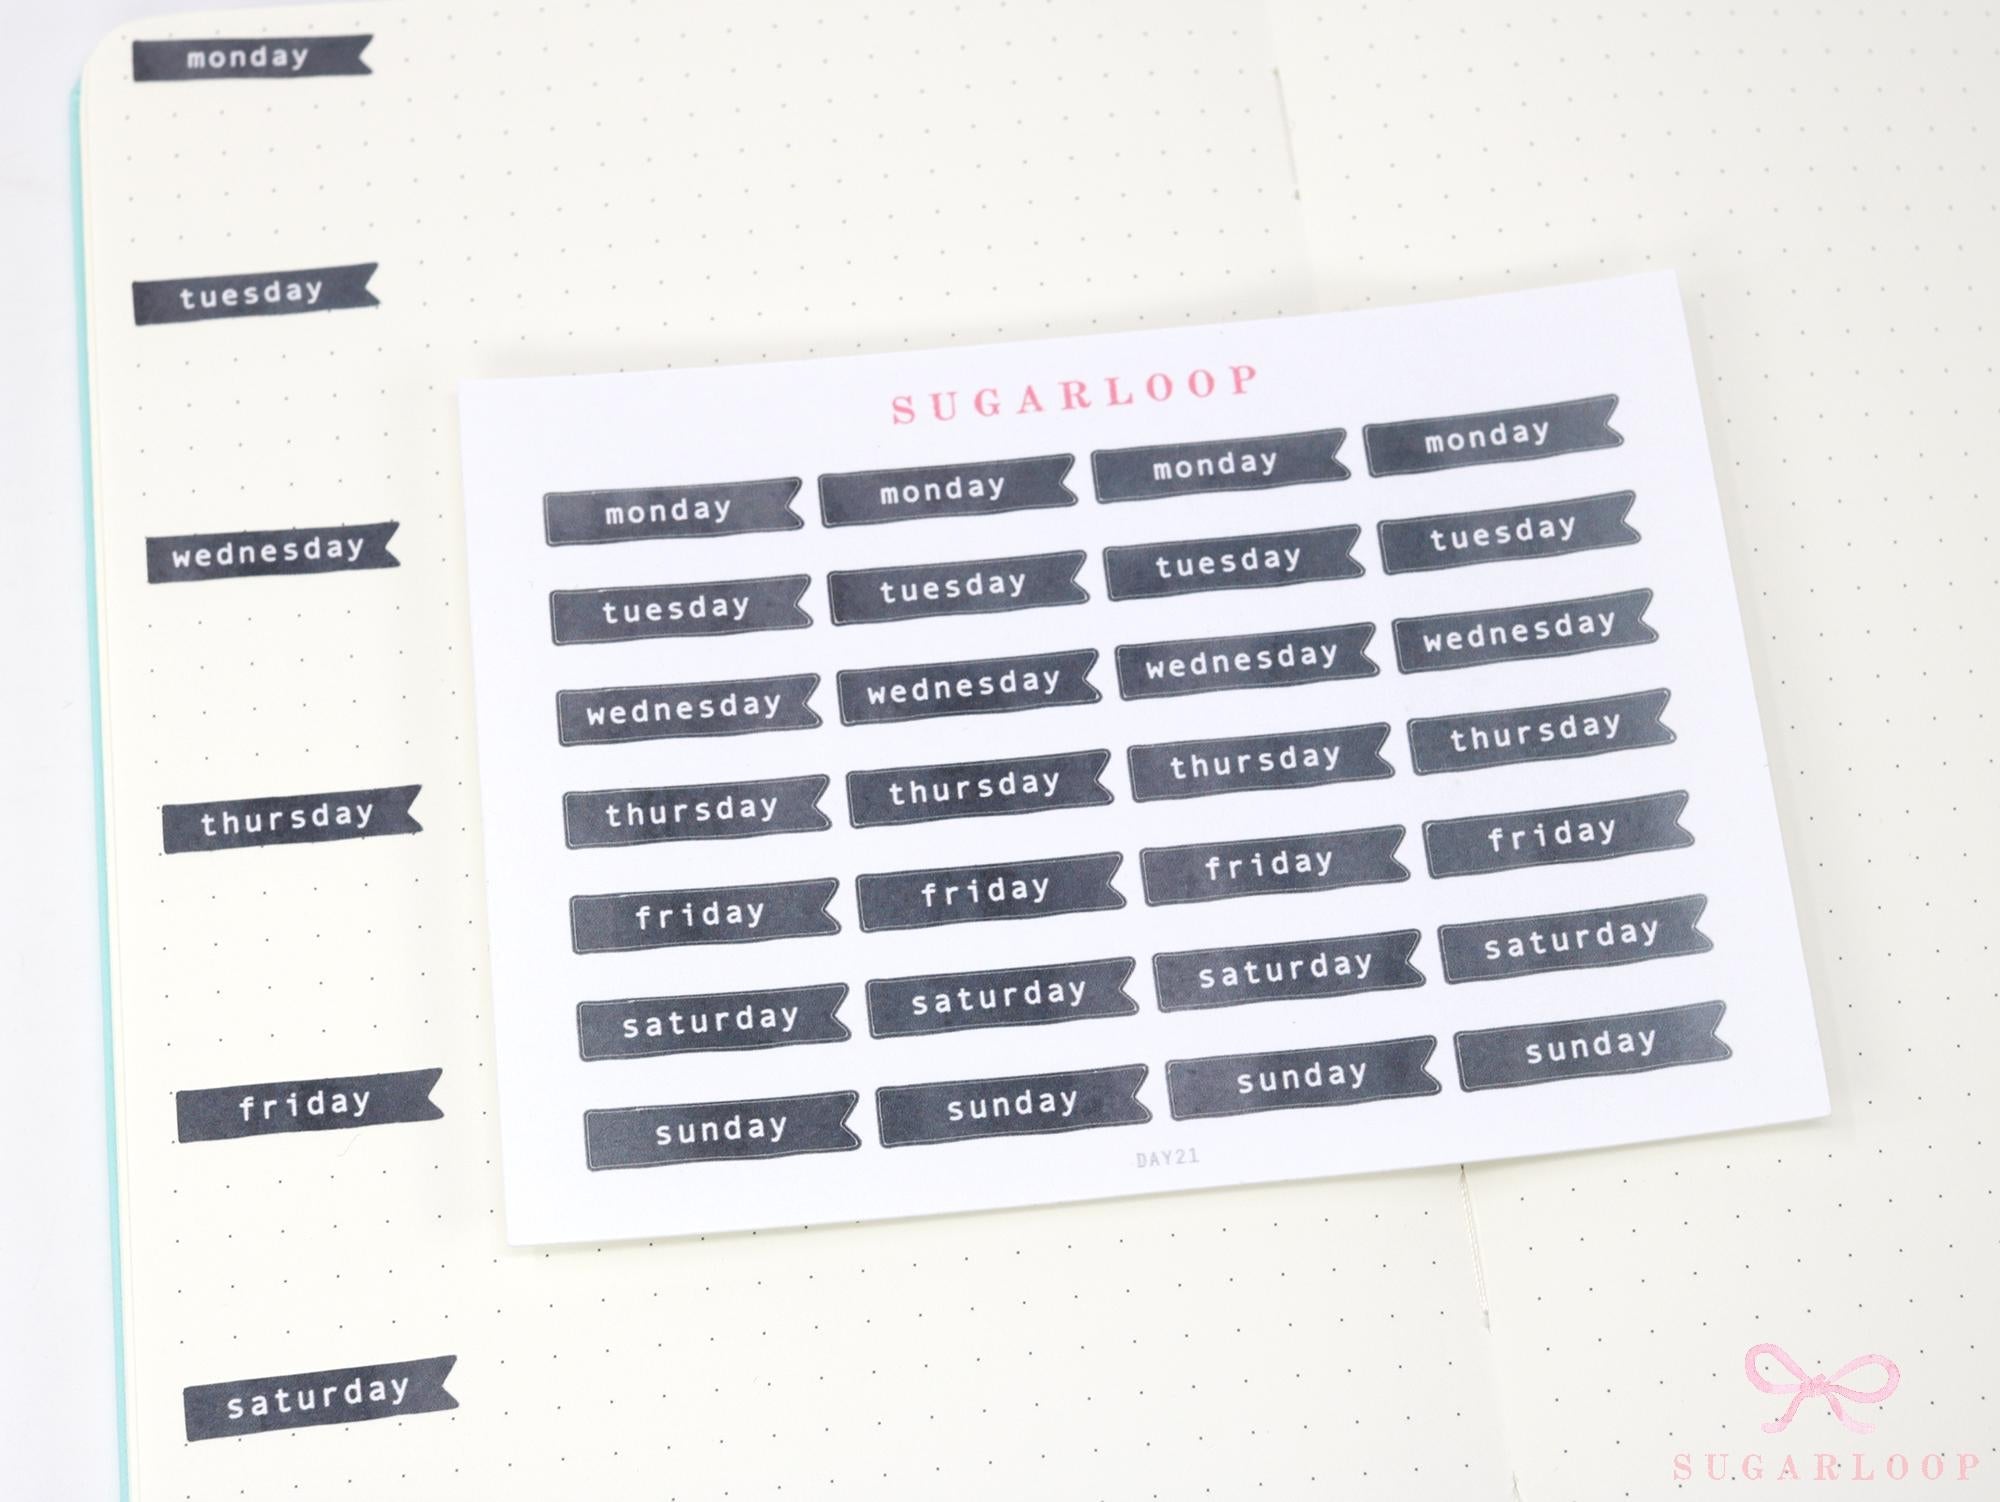 monday
tuesday
wednesday
thursday
friday
saturday
SUGARLOOP
monday monday monday monday
tuesday tuesday tuesday tuesday
wednesday wednesday wednesday wednesday
thursday thursday thursday thursday
friday friday friday friday
saturday saturday saturday saturday
sunday sunday sunday sunday
DAY21
SUGARLOOP